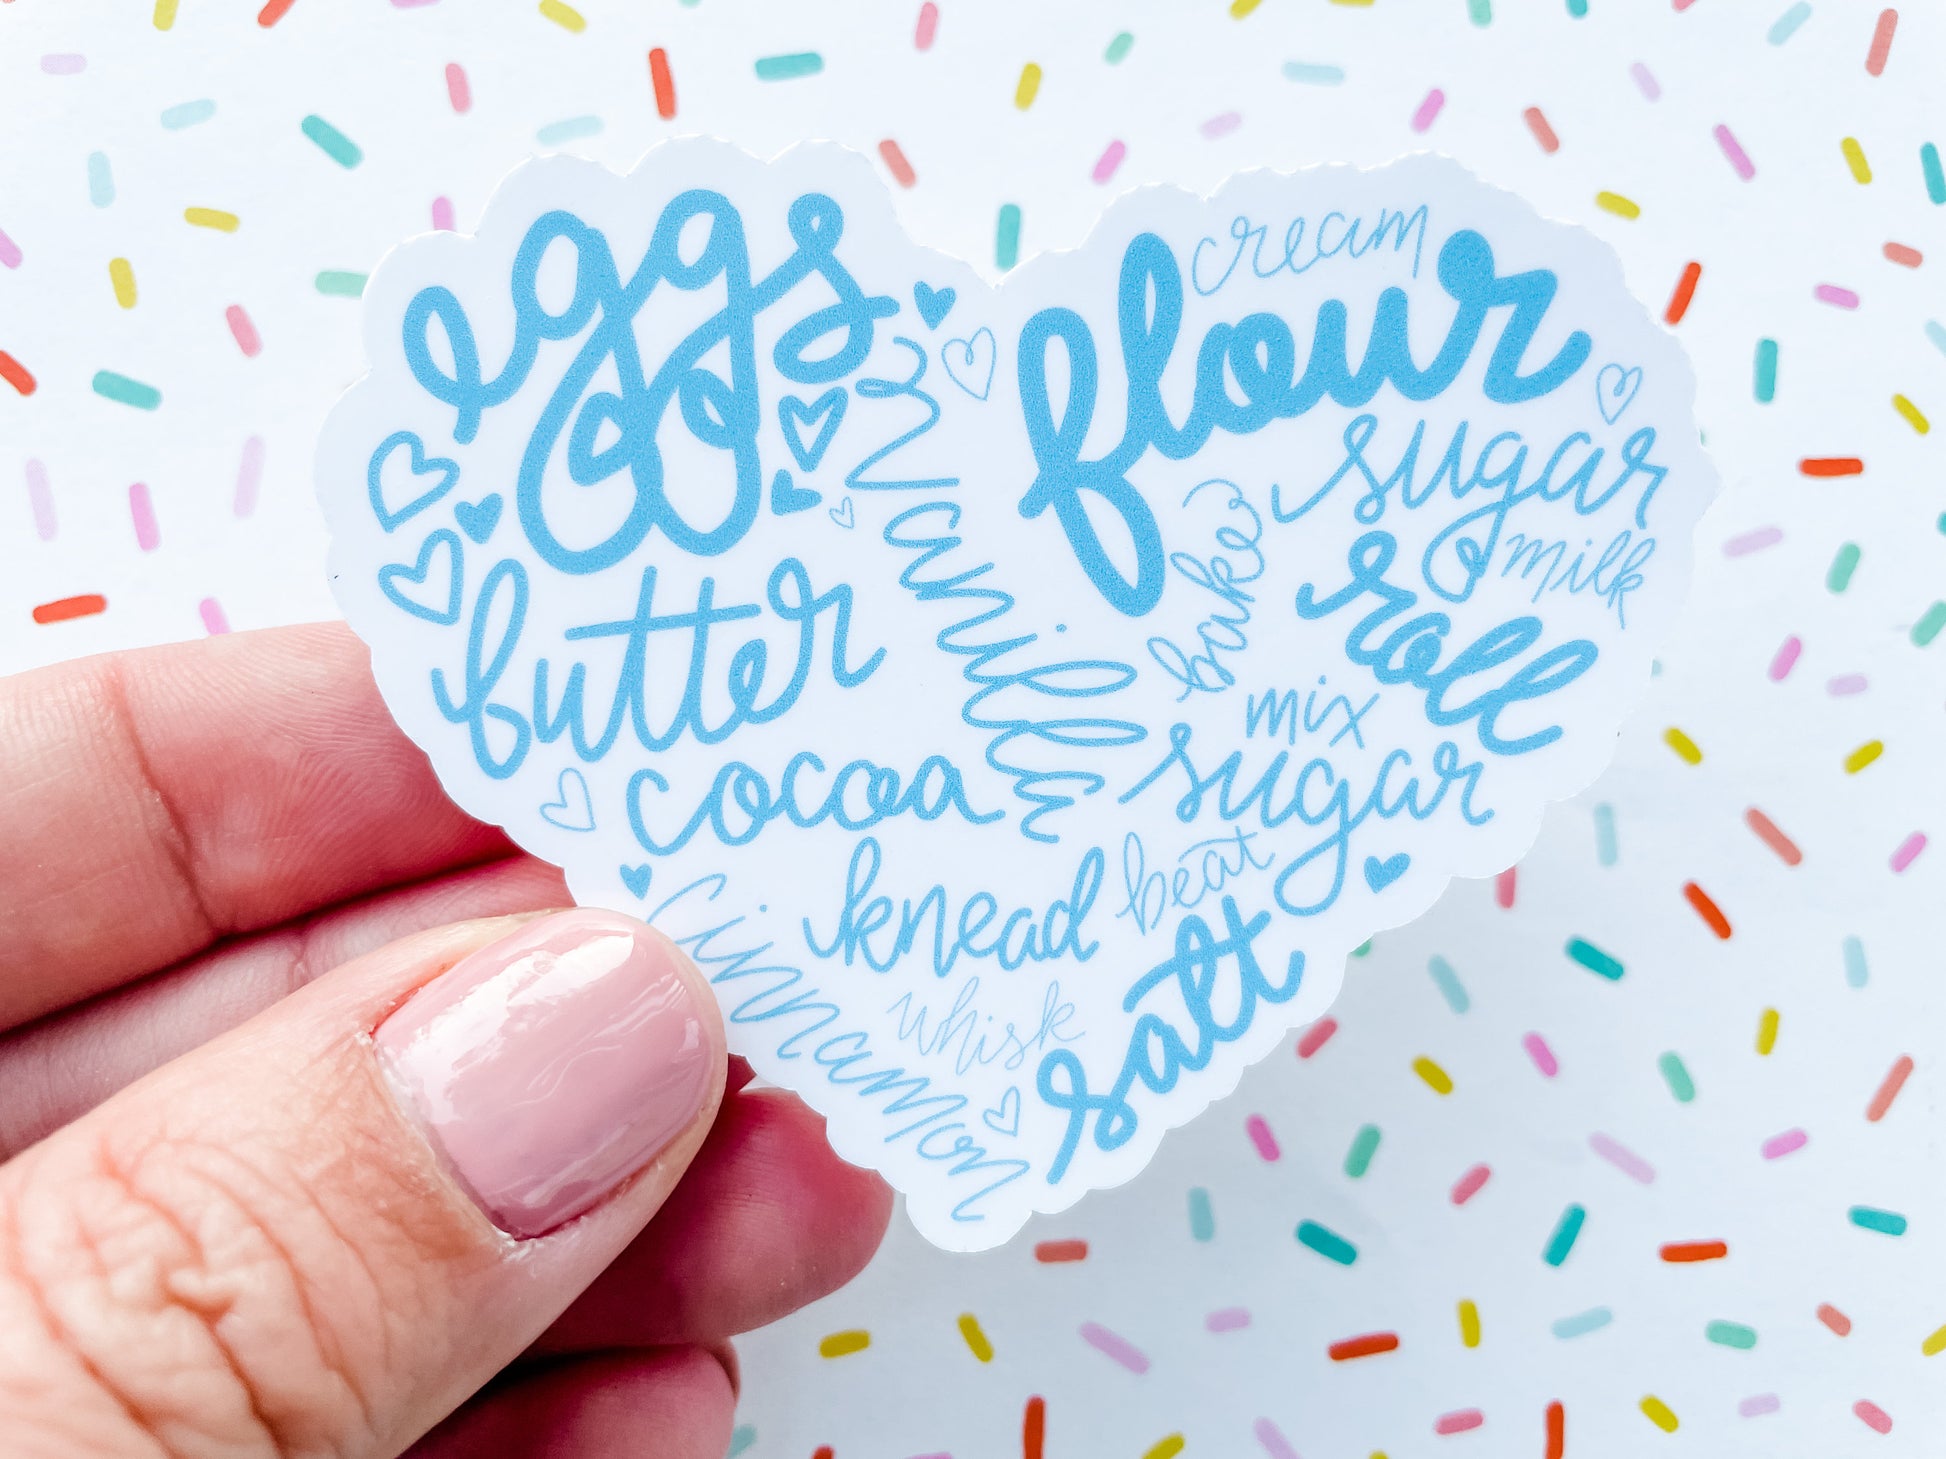 eggs
cream
flour
sugar
milk
vanilla
bake
roll
butter
mix
cocoa
sugar
knead
beat
cinnamon
whisk
salt